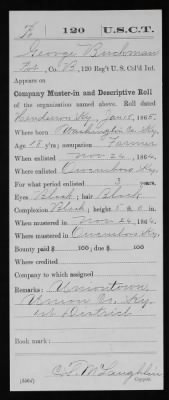 B | 120 | U.S.C.T.
George Buckman
Pvt., Co. B, 120 Reg't U. S. Col'd Inf.
Appears on
Company Muster-in and Descriptive Roll
of the organization named above. Roll dated
Henderson Ky, Jan 15, 1865.
Where born Washington Co. Ky.
Age 18 y'rs; occupation Farmer
When enlisted Nov 24, 1864.
Where enlisted Owensboro Ky.
For what period enlisted 3 years.
Eyes Black; hair Black
Complexion Black; height 5 ft. 5 in.
When mustered in Nov 24, 1864
Where mustered in Owensboro Ky.
Bounty paid $ 100; due $ 100
Where credited
Company to which assigned
Remarks: Uniontown,
Union Co. Ky.
1st District
Book mark:
C. F. McLaughlin
Copyist.